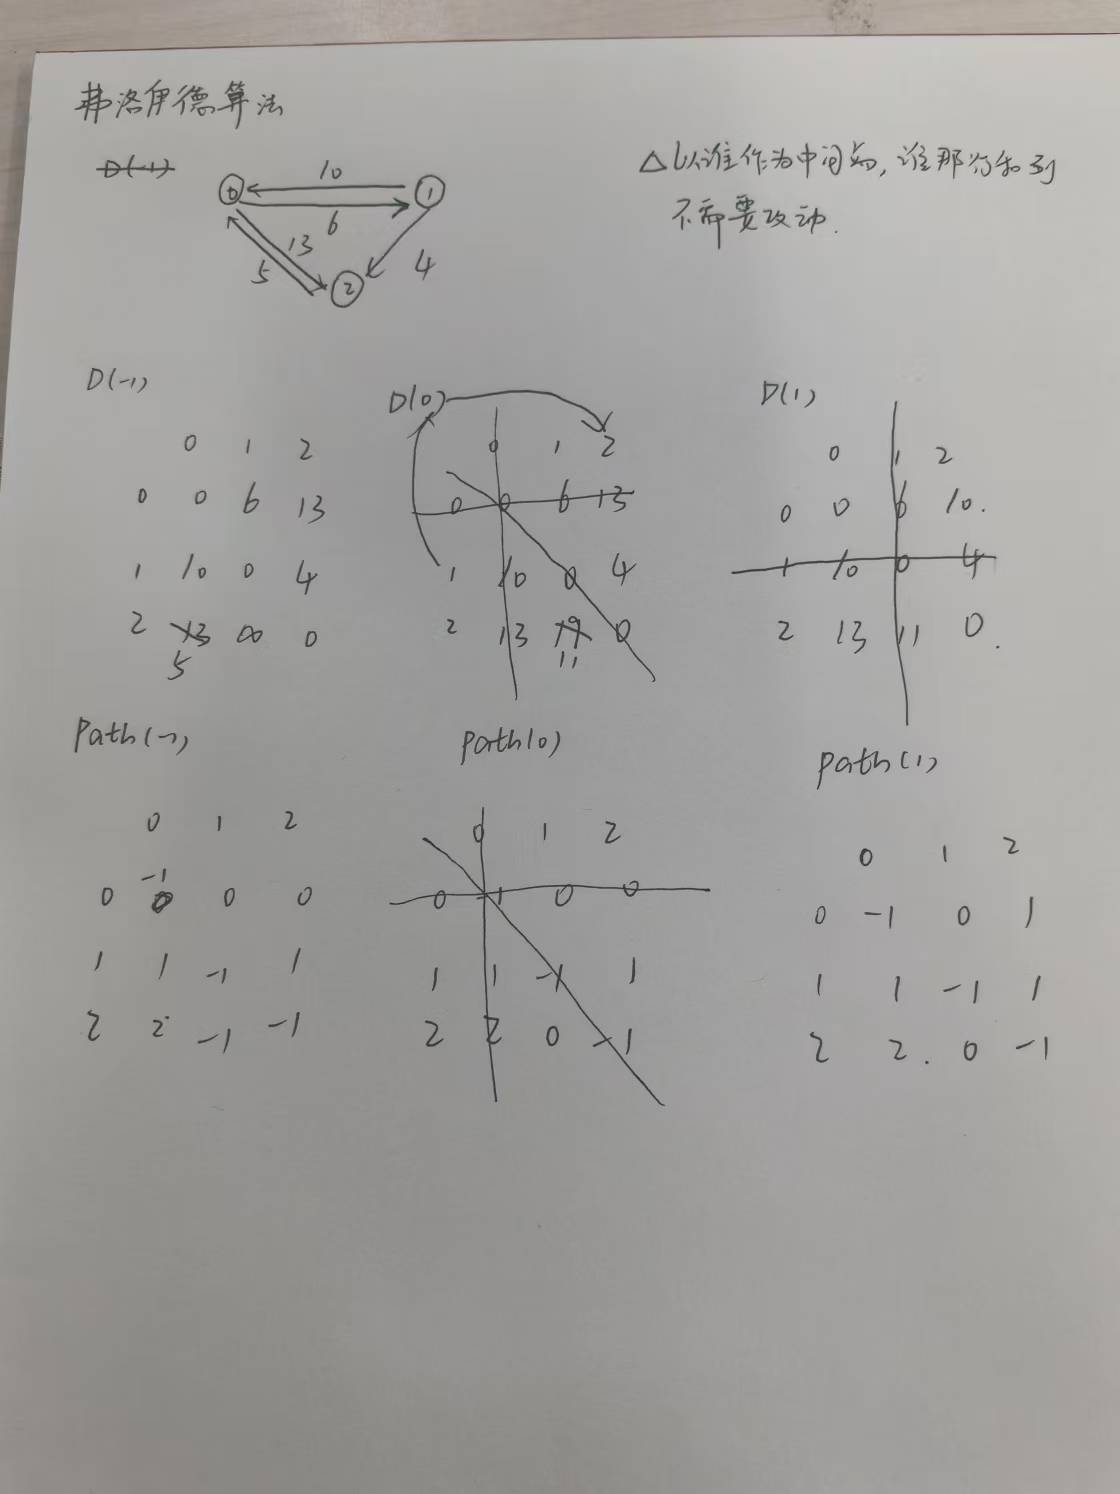 弗洛伊德算法
D(-1)
△以谁作为中间点,谁那行和列
不需要改动.
10
0 1
6
13
5 2 4
D(-1)
0 1 2
0 0 6 13
1 10 0 4
2 13 ∞ 0
5
D(0)
0 1 2
0 0 6 13
1 10 0 4
2 13 19 0
11
D(1)
0 1 2
0 0 6 10.
1 10 0 4
2 13 11 0.
Path(-1)
0 1 2
-1
0 0 0 0
1 1 -1 1
2 2 -1 -1
path(0)
0 1 2
0 -1 0 0
1 1 -1 1
2 2 0 -1
path(1)
0 1 2
0 -1 0 1
1 1 -1 1
2 2. 0 -1